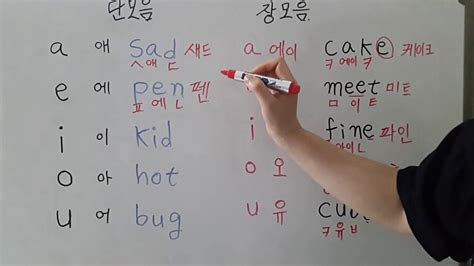 단모음 장모음
a 애 sad 새드 a 에이 cake 케이크
ㅅ애ㄷ ㅋ에이ㅋ
e 에 pen 펜 meet 미트
ㅍ에ㄴ ㅁ이ㅌ
i 이 kid i fine 파인
아이ㄴ
o 아 hot o 오
u 어 bug u 유
ㅋ유ㅂ